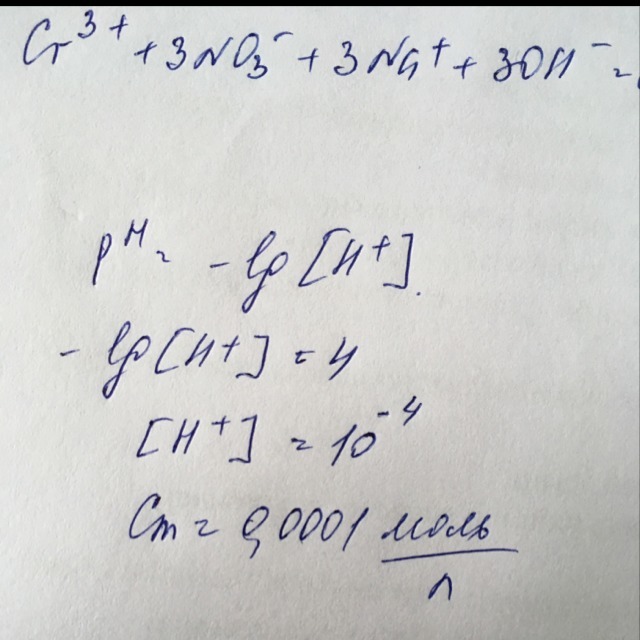 Cr³⁺ + 3NO₃⁻ + 3Na⁺ + 3OH⁻ =
pH = -lg [H⁺].
- lg [H⁺] = 4
[H⁺] = 10⁻⁴
Cm = 0,0001 моль/л